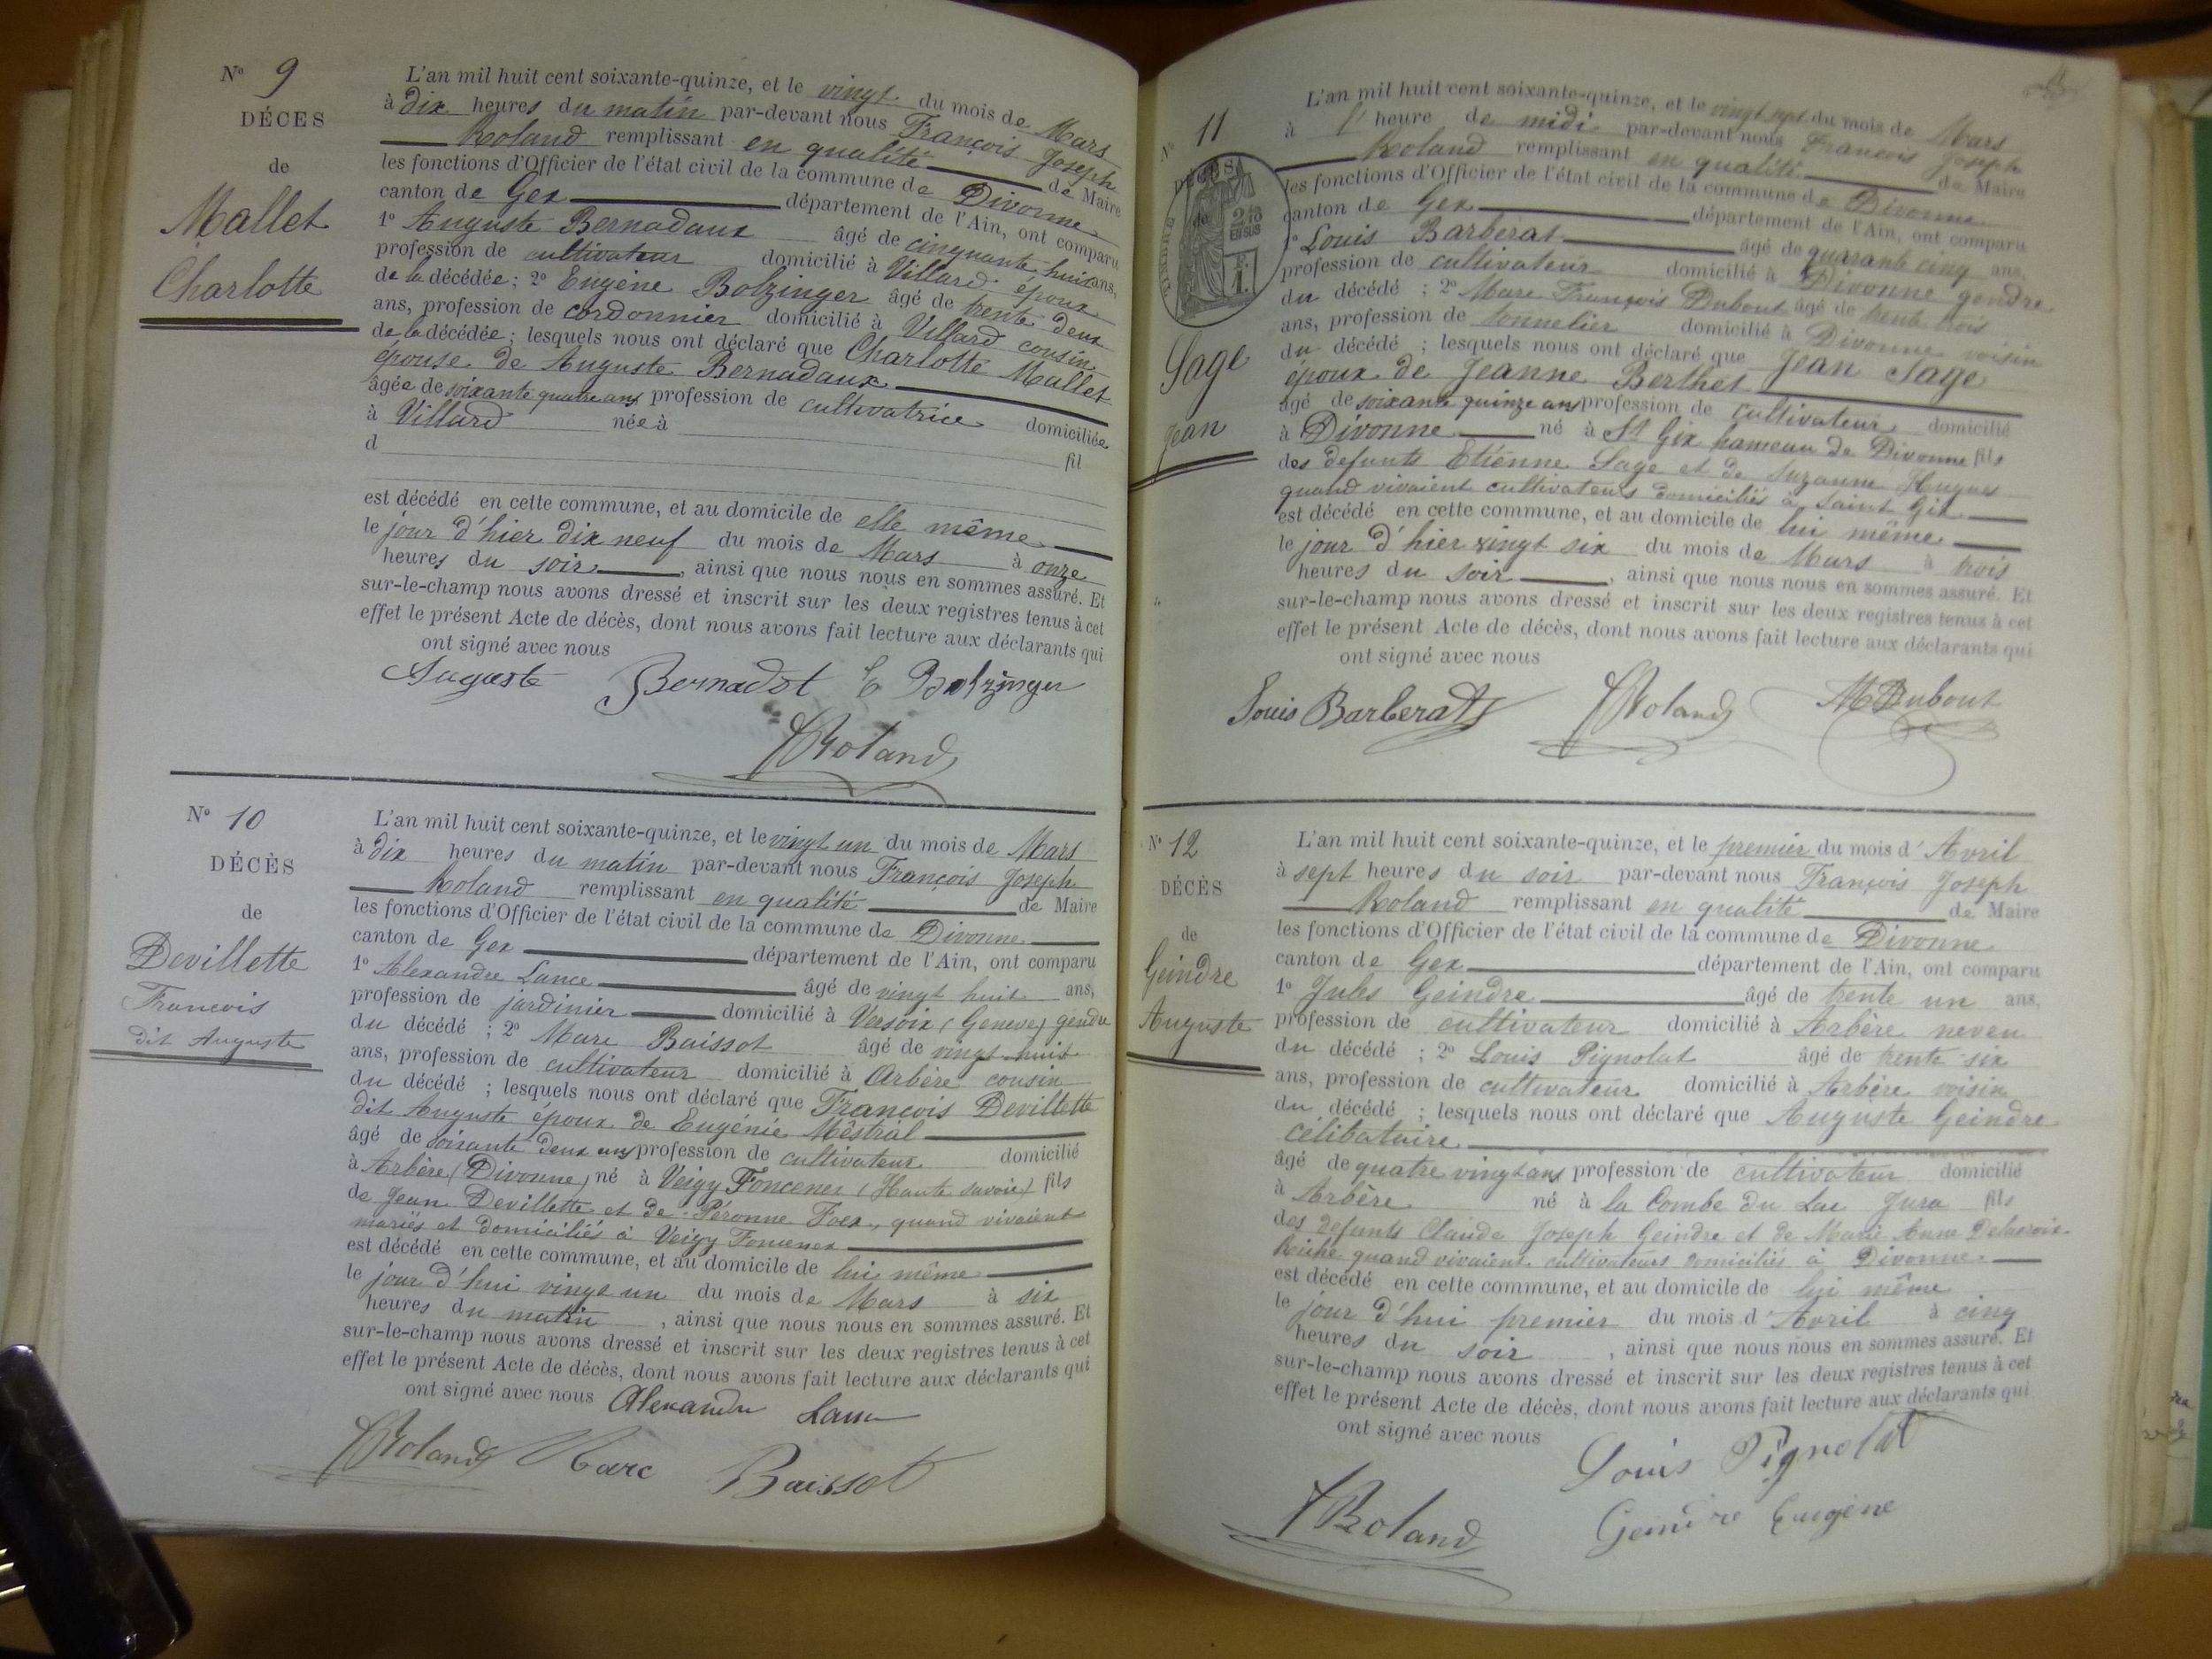 Nº 9
DÉCES
de
Mallet
Charlotte
L'an mil huit cent soixante-quinze, et le vingt du mois de Mars
à dix heures du matin par-devant nous François Joseph
Roland remplissant en qualité de Maire
les fonctions d'Officier de l'état civil de la commune de Divonne
canton de Gex département de l'Ain, ont comparu
1º Auguste Bernadaux âgé de cinquante huit ans,
profession de cultivateur domicilié à Villard époux
de la décédée ; 2º Eugène Bolzinger âgé de trente deux
ans, profession de cordonnier domicilié à Villard cousin
de la décédée ; lesquels nous ont déclaré que Charlotte Mallet
épouse de Auguste Bernadaux
âgée de soixante quatre ans profession de cultivatrice domiciliée
à Villard née à
d fil
est décédé en cette commune, et au domicile de elle même
le jour d'hier dix neuf du mois de Mars à onze
heures du soir, ainsi que nous nous en sommes assuré. Et
sur-le-champ nous avons dressé et inscrit sur les deux registres tenus à cet
effet le présent Acte de décès, dont nous avons fait lecture aux déclarants qui
ont signé avec nous
Auguste Bernadot E Bolzinger
Roland
Nº 10
DÉCÈS
de
Devillette
Francois
dit Auguste
L'an mil huit cent soixante-quinze, et le vingt un du mois de Mars
à dix heures du matin par-devant nous François Joseph
Roland remplissant en qualité de Maire
les fonctions d'Officier de l'état civil de la commune de Divonne
canton de Gex département de l'Ain, ont comparu
1º Alexandre Lance âgé de vingt huit ans,
profession de jardinier domicilié à Versoix (Geneve) gendre
du décédé ; 2º Marc Baissot âgé de vingt huit
ans, profession de cultivateur domicilié à Arbère cousin
du décédé ; lesquels nous ont déclaré que François Devillette
dit Auguste époux de Eugénie Mestral
âgé de soixante deux ans profession de cultivateur domicilié
à Arbère (Divonne) né à Veigy Foncenex (Haute Savoie) fils
de Jean Devillette et de Péronne Foex, quand vivaient
mariés et domiciliés à Veigy Foncenex
est décédé en cette commune, et au domicile de lui même
le jour d'hui vingt un du mois de Mars à six
heures du matin, ainsi que nous nous en sommes assuré. Et
sur-le-champ nous avons dressé et inscrit sur les deux registres tenus à cet
effet le présent Acte de décès, dont nous avons fait lecture aux déclarants qui
ont signé avec nous Alexandre Lance
Roland Marc Baissot
Nº 11
TIMBRE
de
2/10
EN SUS
1 F.
Sage
Jean
L'an mil huit cent soixante-quinze, et le vingt sept du mois de Mars
à l' heure de midi par-devant nous François Joseph
Roland remplissant en qualité de Maire
les fonctions d'Officier de l'état civil de la commune de Divonne
canton de Gex département de l'Ain, ont comparu
1º Louis Barberat âgé de quarante cinq ans,
profession de cultivateur domicilié à Divonne gendre
du décédé ; 2º Marc François Dubout âgé de trente trois
ans, profession de tonnelier domicilié à Divonne voisin
du décédé ; lesquels nous ont déclaré que Jean Sage
époux de Jeanne Berthet
âgé de soixante quinze ans profession de cultivateur domicilié
à Divonne né à St Gix hameau de Divonne fils
des defunts Etienne Sage et de Suzanne Hugues
quand vivaient cultivateurs domiciliés à Saint Gix
est décédé en cette commune, et au domicile de lui même
le jour d'hier vingt six du mois de Mars à trois
heures du soir, ainsi que nous nous en sommes assuré. Et
sur-le-champ nous avons dressé et inscrit sur les deux registres tenus à cet
effet le présent Acte de décès, dont nous avons fait lecture aux déclarants qui
ont signé avec nous
Louis Barberat Roland M Dubout
Nº 12
DÉCÈS
de
Geindre
Auguste
L'an mil huit cent soixante-quinze, et le premier du mois d'Avril
à sept heures du soir par-devant nous François Joseph
Roland remplissant en qualité de Maire
les fonctions d'Officier de l'état civil de la commune de Divonne
canton de Gex département de l'Ain, ont comparu
1º Jules Geindre âgé de trente un ans,
profession de cultivateur domicilié à Arbère neveu
du décédé ; 2º Louis Pignolat âgé de trente six
ans, profession de cultivateur domicilié à Arbère voisin
du décédé ; lesquels nous ont déclaré que Auguste Geindre
célibataire
âgé de quatre vingt ans profession de cultivateur domicilié
à Arbère né à la Combe du Lac Jura fils
des defunts Claude Joseph Geindre et de Marie Anne
quand vivaient cultivateurs domiciliés à Divonne
est décédé en cette commune, et au domicile de lui même
le jour d'hui premier du mois d'Avril à cinq
heures du soir, ainsi que nous nous en sommes assuré. Et
sur-le-champ nous avons dressé et inscrit sur les deux registres tenus à cet
effet le présent Acte de décès, dont nous avons fait lecture aux déclarants qui
ont signé avec nous
Louis Pignolat
Roland Geindre Eugène